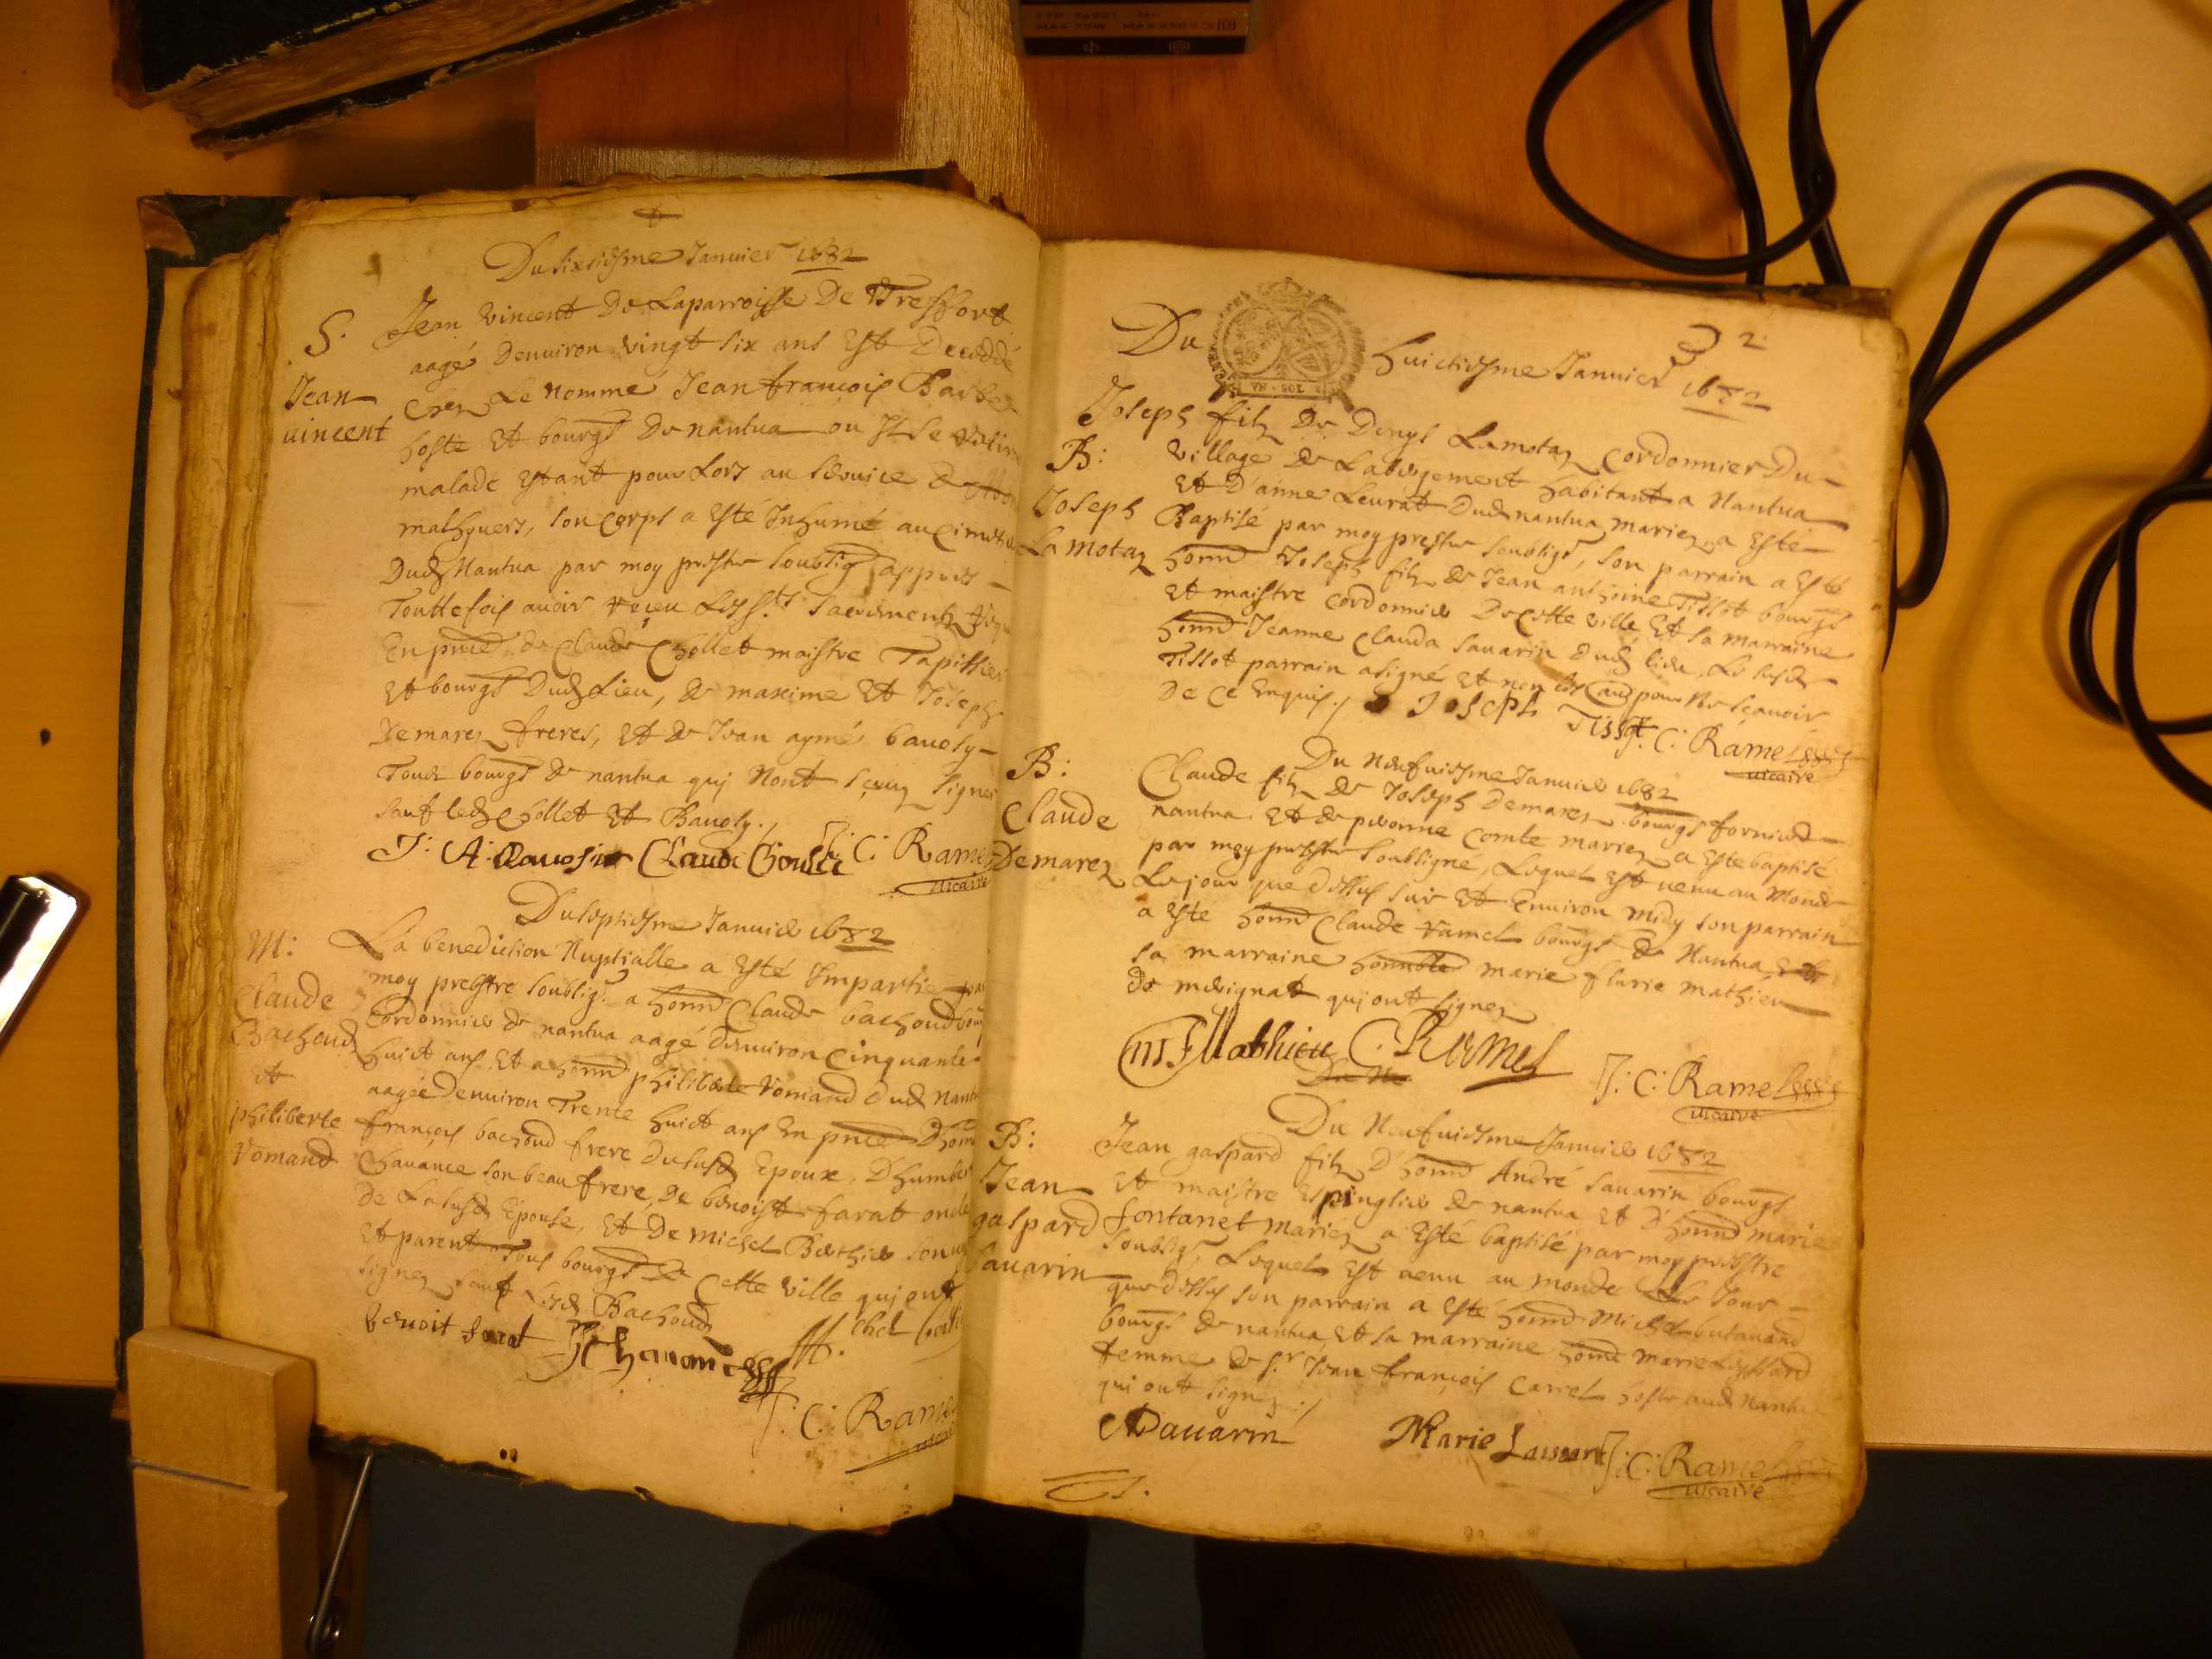 Du sixiesme Januier 1682
S.
Jean
vincent
Jean vincent De Laparroisse De Treffort
aagé denuiron vingt six ans Est Deceddé
chez Le nommé Jean francois Barbe
hoste Et bourgs De nantua ou Il se
malade Estant pour Lors au seruice De
mathyuers, son corps a Esté Inhumé au Cimetie
Dud Nantua par moy prestre soubsig appres
Touttefois auoir reçeu Les Sts Sacrements
En pnce de Claude Chollet maistre Tapissier
Et bourgs Dud Lieu, de maxime Et Joseph
Demarez freres, Et de Jean aymé bauosy
Tous bourgs de nantua quj Nont sceuz signer
sauf led Chollet Et Bauosy.
J: A: Claude J: C: Rame
uicaire
Du septiesme Januier 1682
M:
Claude
Bachoud
Et
philiberte
Romand
La benediction Nuptialle a Esté Impartie par
moy prestre soubsigt a honn Claude bachoud bou
Cordonnier de nantua aagé denuiron Cinquante
huict ans Et a honn philiberte Romand dud Nant
aagée Denuiron Trente huict ans En pnce D'honn
françois bachoud frere dususd Epoux, D'humber
Chauance son beau frere, De benoist farat oncle
De Lasusd Epouse, Et De michel Berthier son
Et parent Tous bourgs De Cette ville quj ont
signez sauf Lesd Bachoud
benoit farat
J: C: Rame
uicai
2.
Du huictiesme Januier 1682
B:
Joseph
La motaz
Joseph filz De Denys Lamotaz Cordonnier Du
village de Labergement habitant a Nantua
Et D'anne Leurat Dud nantua mariez a Esté
Baptisé par moy prestre soubsigt, son parrain a Esté
honn Joseph filz de Jean anthoine Tissot bourgs
Et maistre Cordonnier De Cette ville, Et sa marraine
honn Jeanne Clauda sauarin dud lieu, Le susd
Tissot parrain a signé Et non pour Ne sçauoir
De Ce Enquis./ Joseph Tissot J: C: Ramel
uicaire
Du Neufuiesme Januier 1682
B:
Claude
Demarez
Claude filz de Joseph Demarez bourgs fornier
nantua Et de pernonne Comte mariez a Este baptisé
par moy prestre soubsigné, Lequel Est uenu au Monde
Le jour que dessus sur Et Enuiron Midy son parrain
a Esté honn Claude ramel bourgs de Nantua Et
sa marraine honnble marie flurie mathieu
de merignat quj ont signez
m F Mathieu C. Ramel
Du Ne
J: C: Ramel
uicaire
Du Neufuiesme Januier 1682
B:
Jean
gaspard
Sauarin
Jean gaspard filz D'honn André sauarin bourgs
Et maistre Espinglier de nantua Et D'honn marie
fontanet mariez a Esté baptisé par moy prestre
soubsigt, Lequel Est uenu au monde Le Jour
que dessus son parrain a Esté honn Michel butauand
bourgs de nantua Et sa marraine honn marie
femme de Sr Jean françois Carrel hoste aud Nantu
qui ont signez./
ASauarin
Marie J: C: Ramel
uicaire